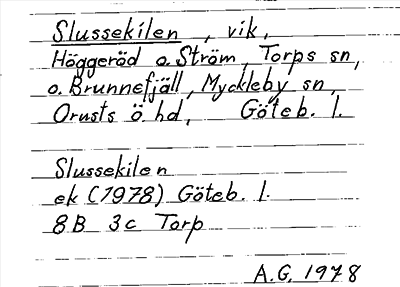 Slussekilen, vik,
Höggeröd o. Ström, Torps sn,
o. Brunnefjäll, Myckleby sn,
Orusts ö. hd, Göteb. l.
Slussekilen
ek (1978) Göteb. l.
8B 3c Torp
A.G. 1978